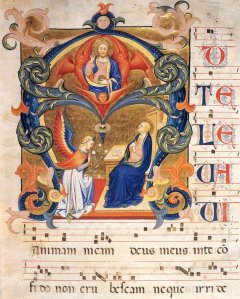 D
TE
LE
VA
VI
Animam meam deus meus inte co
fi do non eru bescam neque irri de